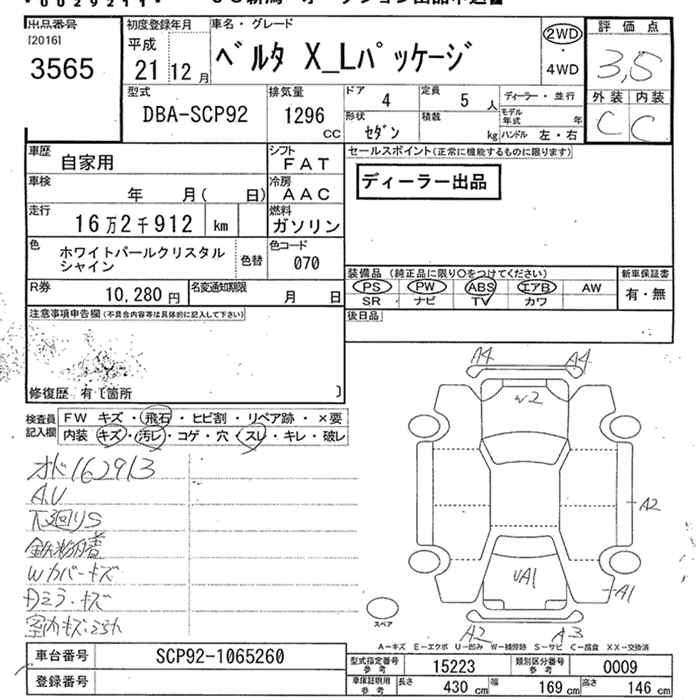 出品番号
[2016]
3565
初度登録年月
平成
21 12 月
車名・グレード
ベルタ X_Lパッケージ
2WD
・
4WD
評価点
3,5
外装 内装
C C
型式
DBA-SCP92
排気量
1296
CC
ドア 4
定員 5 人
ディーラー・並行
形状
セダン
積載
kg
モデル年式 年
ハンドル 左・右
車歴
自家用
シフト
FAT
車検
年 月( 日)
冷房
AAC
走行
16万2千912 km
燃料
ガソリン
色
ホワイトパールクリスタル
シャイン
色替
色コード
070
R券
10,280 円
名変通知期限
月 日
セールスポイント(正常に機能するものに限ります)
ディーラー出品
装備品 (純正品に限り○をつけてください)
PS PW ABS エアB AW
SR ナビ TV カワ
新車保証書
有・無
後日品
注意事項申告欄(不具合内容等は具体的に記入して下さい)
修復歴 有〔箇所 〕
検査員
記入欄
FW キズ・飛石・ヒビ割・リペア跡・×要
内装 キズ・汚レ・コゲ・穴・スレ・キレ・破レ
オド162913
A.U
下廻りS
鉄粉付着
Wカバーキズ
Dミラーキズ
A4 A4
w2
A2
UA1
A1
A2 A3
スペア
A-キズ E-エクボ U-凹み W-補修跡 S-サビ C-腐食 XX-交換済
車台番号
SCP92-1065260
登録番号
型式指定番号
参考
15223
類別区分番号
参考
0009
車庫証明用
参考
長さ 430 cm
幅 169 cm
高さ 146 cm